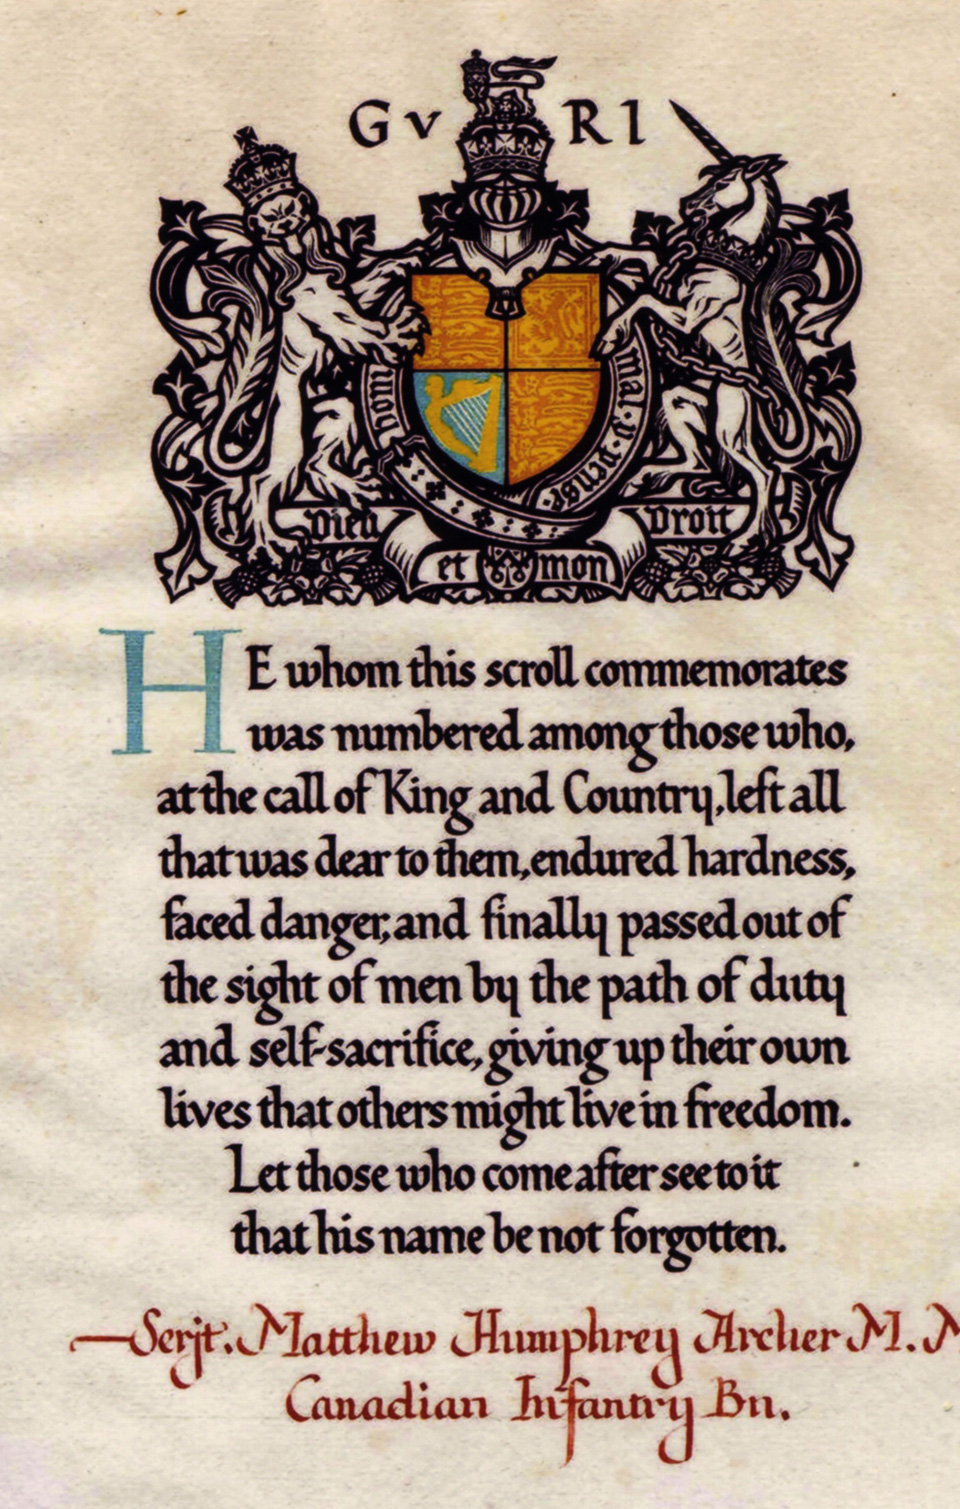 G V R I
Honi mal·y·pense·
Dieu Droit
et mon
HE whom this scroll commemorates
was numbered among those who,
at the call of King and Country, left all
that was dear to them, endured hardness,
faced danger, and finally passed out of
the sight of men by the path of duty
and self-sacrifice, giving up their own
lives that others might live in freedom.
Let those who come after see to it
that his name be not forgotten.
—Serjt. Matthew Humphrey Archer M. M
Canadian Infantry Bn.